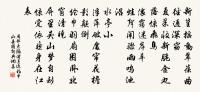 新篁搖動翠葆曲徑通
深窈夏果收新脆金丸
落驚飛鳥濃靄迷岸
草蛙聲鬧驟雨鳴池
沼
水亭小
浮萍破處簾花簷
影顛倒綸
巾羽扇困臥北
窗清曉
屏裏吳山夢自到
驚覺依然身在江
表